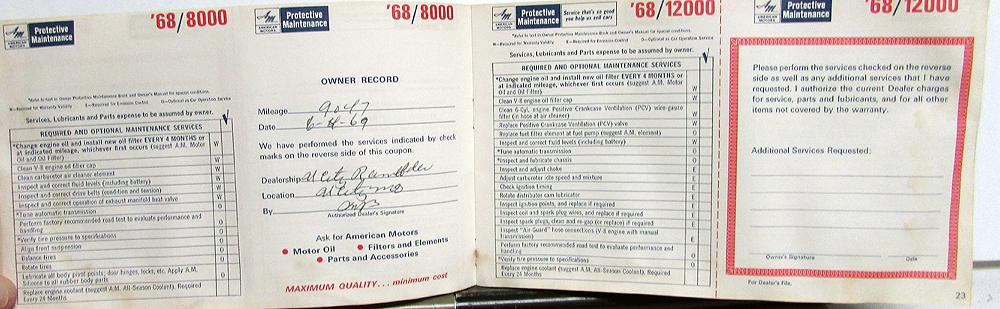 AM
AMERICAN MOTORS
Protective Maintenance
'68/8000
*Refer to text in Owner Protective Maintenance Book and Owner's Manual for special conditions.
W—Required for Warranty Validity E—Required for Emission Control O—Optional as Car Operation Service
Services, Lubricants and Parts expense to be assumed by owner. √
REQUIRED AND OPTIONAL MAINTENANCE SERVICES
*Change engine oil and install new oil filter EVERY 4 MONTHS or
at indicated mileage, whichever first occurs (suggest A.M. Motor
Oil and Oil Filter) W
Clean V-8 engine oil filler cap W
Clean carburetor air cleaner element W
Inspect and correct fluid levels (including battery) W
Inspect and correct drive belts (condition and tension) W
Inspect and correct operation of exhaust manifold heat valve W
*Tune automatic transmission O
Perform factory recommended road test to evaluate performance and
handling O
*Verify tire pressure to specifications O
Align front suspension O
Balance tires O
Rotate tires O
Lubricate all body pivot points; door hinges, locks, etc. Apply A.M.
Silicone to all rubber body parts O
Replace engine coolant (suggest A.M. All-Season Coolant). Required
Every 24 Months
AM
AMERICAN MOTORS
Protective Maintenance
'68/8000
OWNER RECORD
Mileage 9047
Date 6-4-69
We have performed the services indicated by check
marks on the reverse side of this coupon.
Dealership U City Rambler
Location U City mo
By
Authorized Dealer's Signature
Ask for American Motors
• Motor Oil • Filters and Elements
• Parts and Accessories
MAXIMUM QUALITY... minimum cost
AM
AMERICAN MOTORS
Protective Maintenance
Service that's so good you help us sell cars
'68/12000
*Refer to text in Owner Protective Maintenance Book and Owner's Manual for special conditions.
W—Required for Warranty Validity E—Required for Emission Control O—Optional as Car Operation Service
Services, Lubricants and Parts expense to be assumed by owner. √
REQUIRED AND OPTIONAL MAINTENANCE SERVICES
*Change engine oil and install new oil filter EVERY 4 MONTHS or
at indicated mileage, whichever first occurs (suggest A.M. Motor
Oil and Oil Filter) W
Clean V-8 engine oil filler cap W
Clean 6-Cyl. engine Positive Crankcase Ventilation (PCV) wire-gauze
filter (in hose at air cleaner) W
Replace Positive Crankcase Ventilation (PCV) valve W
Replace fuel filter element at fuel pump (suggest A.M. element) O
Inspect and correct fluid levels (including battery) W
*Tune automatic transmission O
*Inspect and lubricate chassis O
Inspect and adjust choke E
Adjust carburetor idle speed and mixture E
Check ignition timing E
Rotate distributor cam lubricator E
Inspect ignition points, and replace if required E
Inspect coil and spark plug wires, and replace if required E
Inspect spark plugs, clean and re-gap (or replace) if required E
Inspect "Air Guard" hose connections (V-8 engine with manual
transmission) E
Perform factory recommended road test to evaluate performance and
handling O
*Verify tire pressure to specifications O
Replace engine coolant (suggest A.M. All-Season Coolant). Required
Every 24 Months
AM
AMERICAN MOTORS
Protective Maintenance
'68/12000
Please perform the services checked on the reverse
side as well as any additional services that I have
requested. I authorize the current Dealer charges
for service, parts and lubricants, and for all other
items not covered by the warranty.
Additional Services Requested:
Owner's Signature Date
For Dealer's File.
23